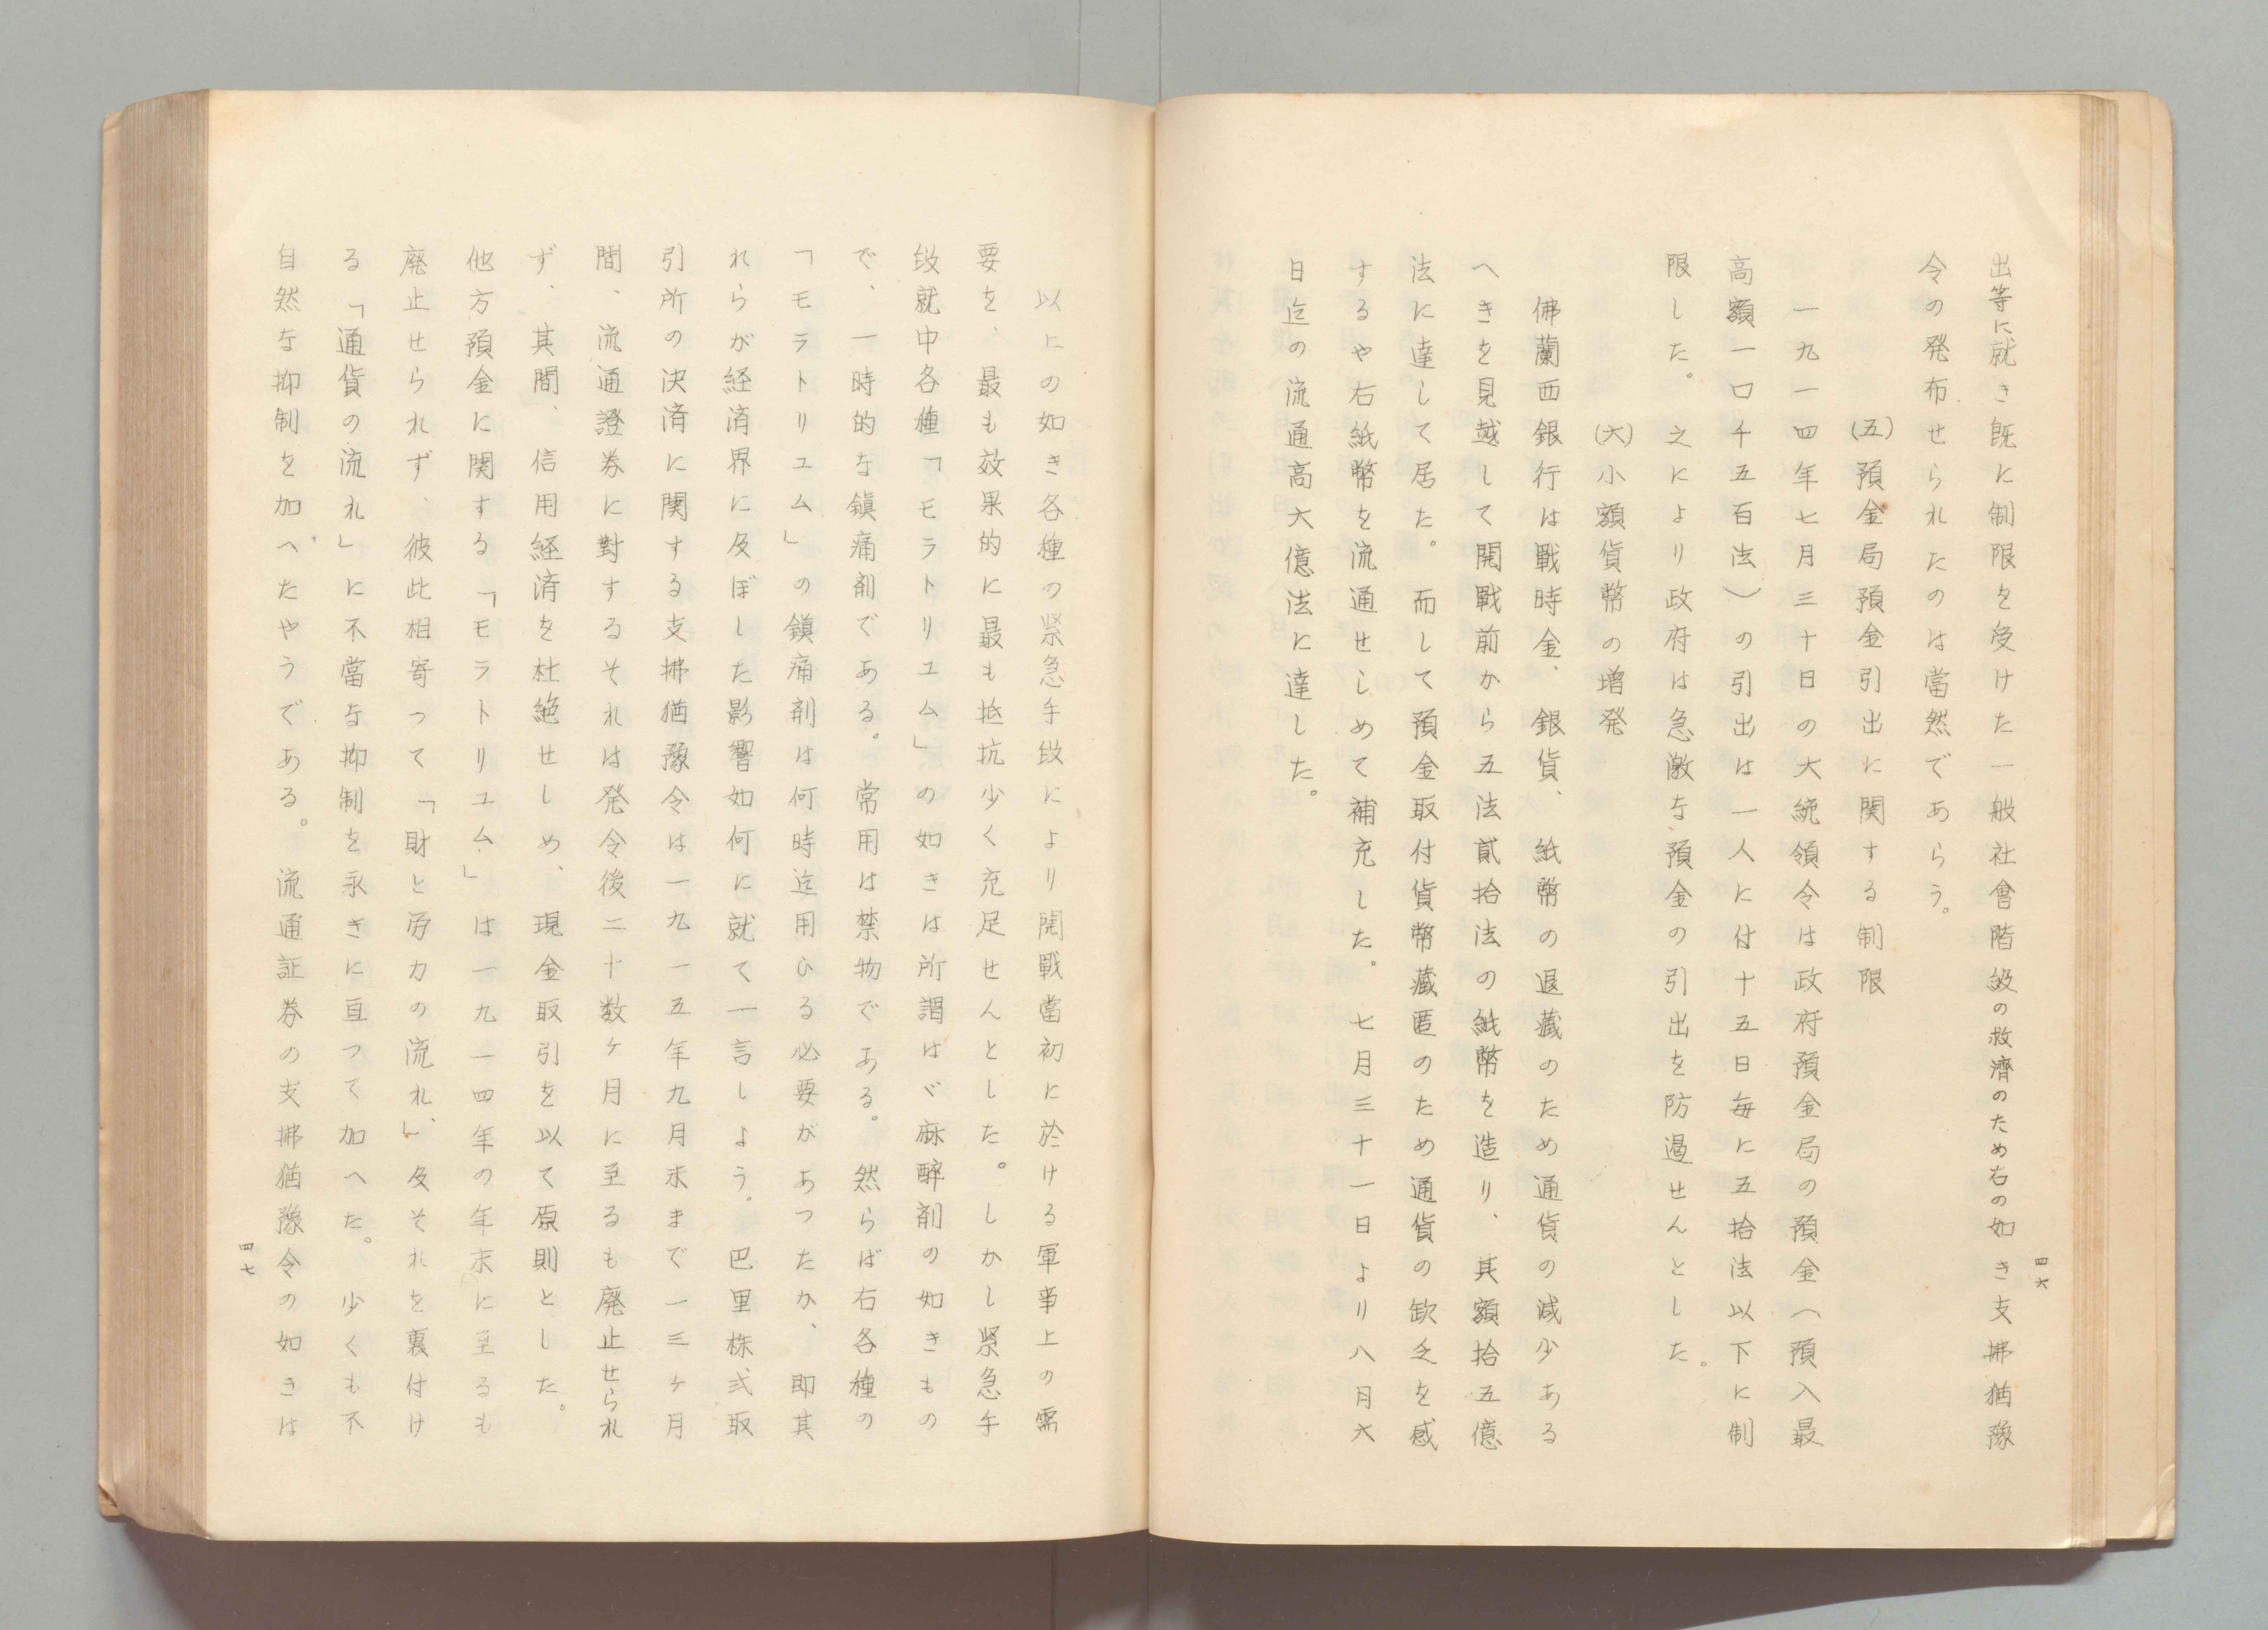 出等に就き既に制限を受けた一般社會階級の救濟のため右の如き支拂猶豫
令の発布せられたのは當然であらう。
(五)預金局預金引出に関する制限
一九一四年七月三十日の大統領令は政府預金局の預金(預入最
高額一口千五百法)の引出は一人に付十五日毎に五拾法以下に制
限した。之により政府は急激な預金の引出を防遏せんとした。
(六)小額貨幣の増発
佛蘭西銀行は戰時金、銀貨、紙幣の退藏のため通貨の減少ある
へきを見越して開戰前から五法貳拾法の紙幣を造り、其額拾五億
法に達して居た。而して預金取付貨幣藏匿のため通貨の欽乏を感
するや右紙幣を流通せしめて補充した。七月三十一日より八月六
日迄の流通高六億法に達した。
四六
以上の如き各種の緊急手段により開戰當初に於ける軍事上の需
要を、最も效果的に最も抵抗少く充足せんとした。しかし緊急手
段就中各種「モラトリユム」の如きは所謂はゞ麻醉剤の如きもの
で、一時的な鎭痛剤である。常用は禁物である。然らば右各種の
「モラトリユム」の鎭痛剤は何時迄用ひる必要があつたか、即其
れらが経済界に及ぼした影響如何に就て一言しよう。巴里株式取
引所の決済に関する支拂猶豫令は一九一五年九月末まで一三ヶ月
間、流通證券に對するそれは発令後二十数ヶ月に至るも廃止せられ
ず、其間、信用経済を杜絶せしめ、現金取引を以て原則とした。
他方預金に関する「モラトリユム」は一九一四年の年末に至るも
廃止せられず、彼此相寄つて「財と労力の流れ」、及それを裏付け
る「通貨の流れ」に不當な抑制を永きに亘つて加へた。少くも不
自然な抑制を加へたやうである。流通証券の支拂猶豫令の如きは
四七